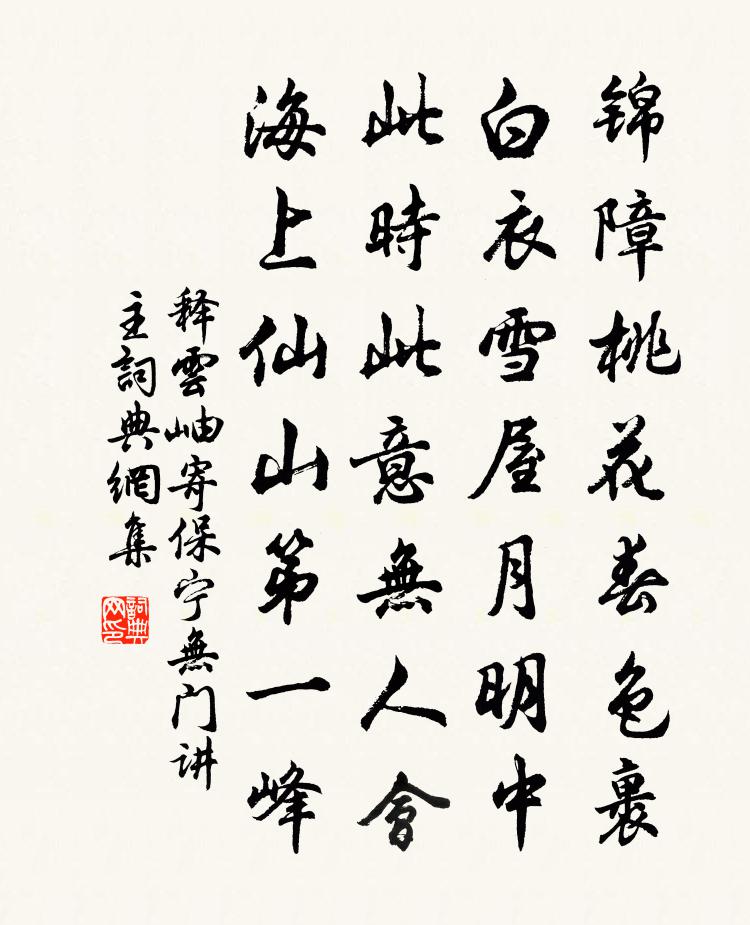 锦障桃花春色裏
白衣雪屋月明中
此時此意無人會
海上仙山第一峰
释雲岫寄保宁無门讲
主詞典網集
詞典网印